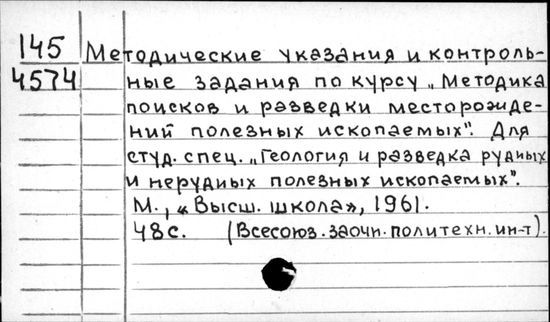 145 Методические указания и контроль-
4574 ные задания по курсу „Методика
поисков и разведки месторожде-
ний полезных ископаемых". Для
студ. спец. „Геология и разведка рудных
и нерудных полезных ископаемых".
М., «Высш. школа», 1961.
48 с. (Всесоюз. заочн. политехн. ин-т).